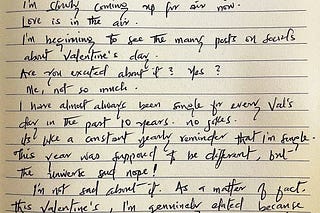 I'm slowly coming up for air now.
Love is in the air.
I'm beginning to see the many posts on socials
about Valentine's day.
Are you excited about it? Yes?
Me, not so much.
I have almost always been single for every Val's
day in the past 10 years. no jokes.
It's like a constant yearly reminder that I'm single.
This year was supposed to be different, but
the universe said nope!
I'm not sad about it. As a matter of fact,
this Valentine's, I'm genuinely elated because